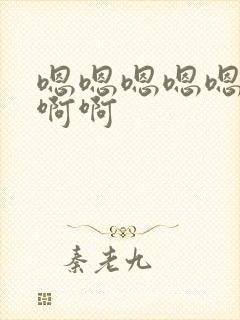 嗯嗯嗯嗯嗯
啊啊
秦老九